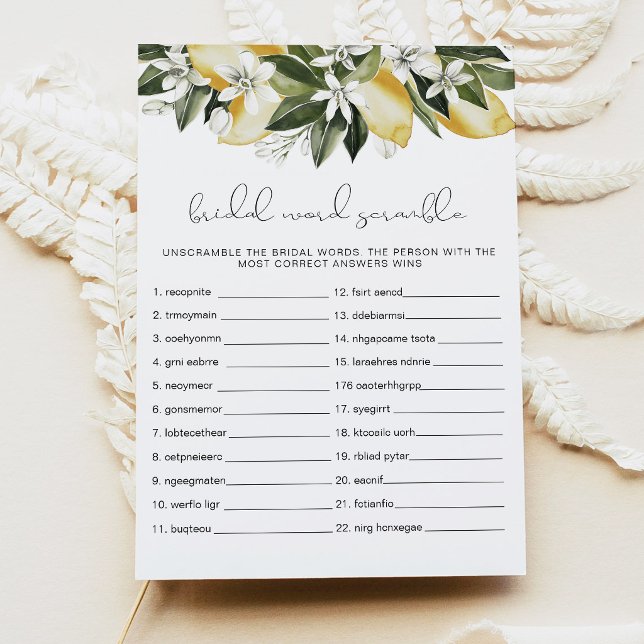 bridal word scramble
UNSCRAMBLE THE BRIDAL WORDS. THE PERSON WITH THE
MOST CORRECT ANSWERS WINS
1. recopnite
2. trmoymain
3. ooehyonmn
4. grni eabrre
5. neoymecr
6. gonsmemor
7. lobtecethear
8. oetpneieerc
9. ngeegmaten
10. werflo ligr
11. buqteou
12. fsirt aencd
13. ddebiarmsi
14. nhgapcame tsota
15. laraehres ndnrie
176 oaoterhhgrpp
17. syegirrt
18. ktcoailc uorh
19. rbliad pytar
20. eacnif
21. fctianfio
22. nirg hcnxegae